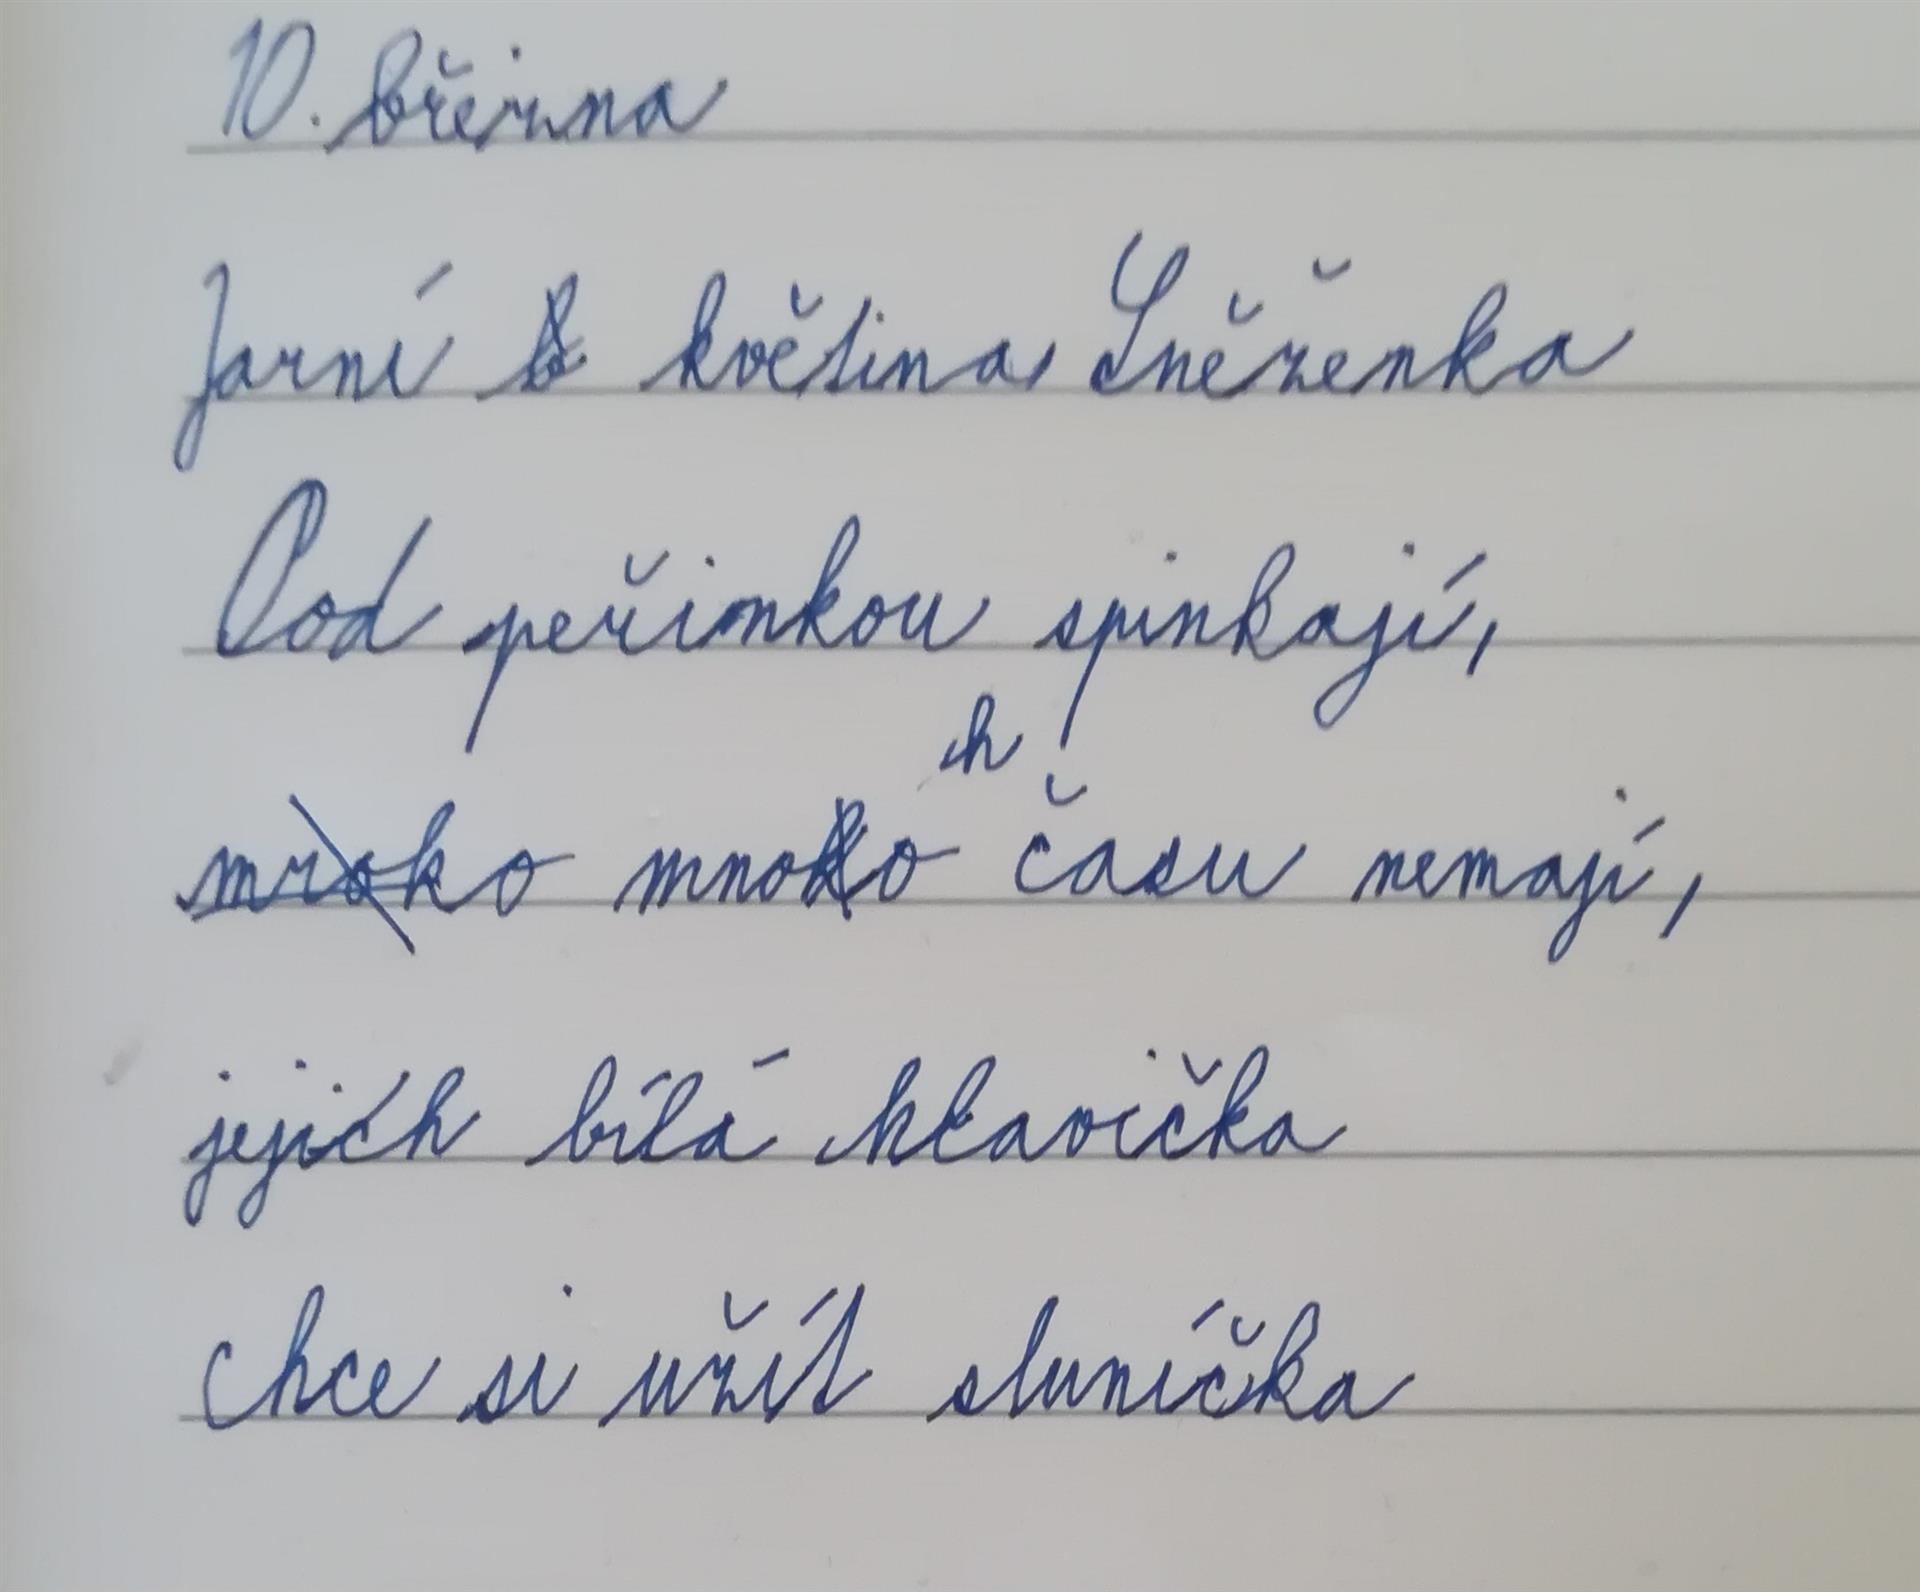 10. března
Jarní květina Sněženka
Pod peřinkou spinkají,
mnoho času nemají,
jejich bílá hlavička
chce si užít sluníčka